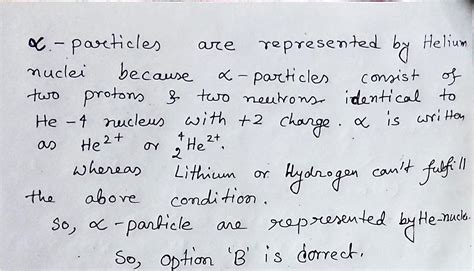 α - particles are represented by Helium
nuclei because α - particles consist of
two protons & two neutrons identical to
He -4 nucleus with +2 charge. α is written
as He²⁺ or ⁴₂He²⁺.
Whereas Lithium or Hydrogen can't fulfill
the above condition.
So, α - particle are represented by He-nuclei.
So, option 'B' is correct.